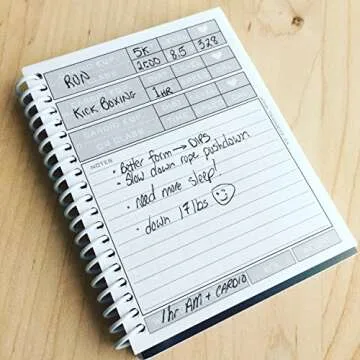 RUN 5K
2500 8.5 328
KICK BOXING 1HR
CARDIO FOR
OR CLASS
NOTES
• Better form → DIPS
• Slow down rope pushdown
• need more sleep!
• down 17 lbs
1hr AM + CARDIO